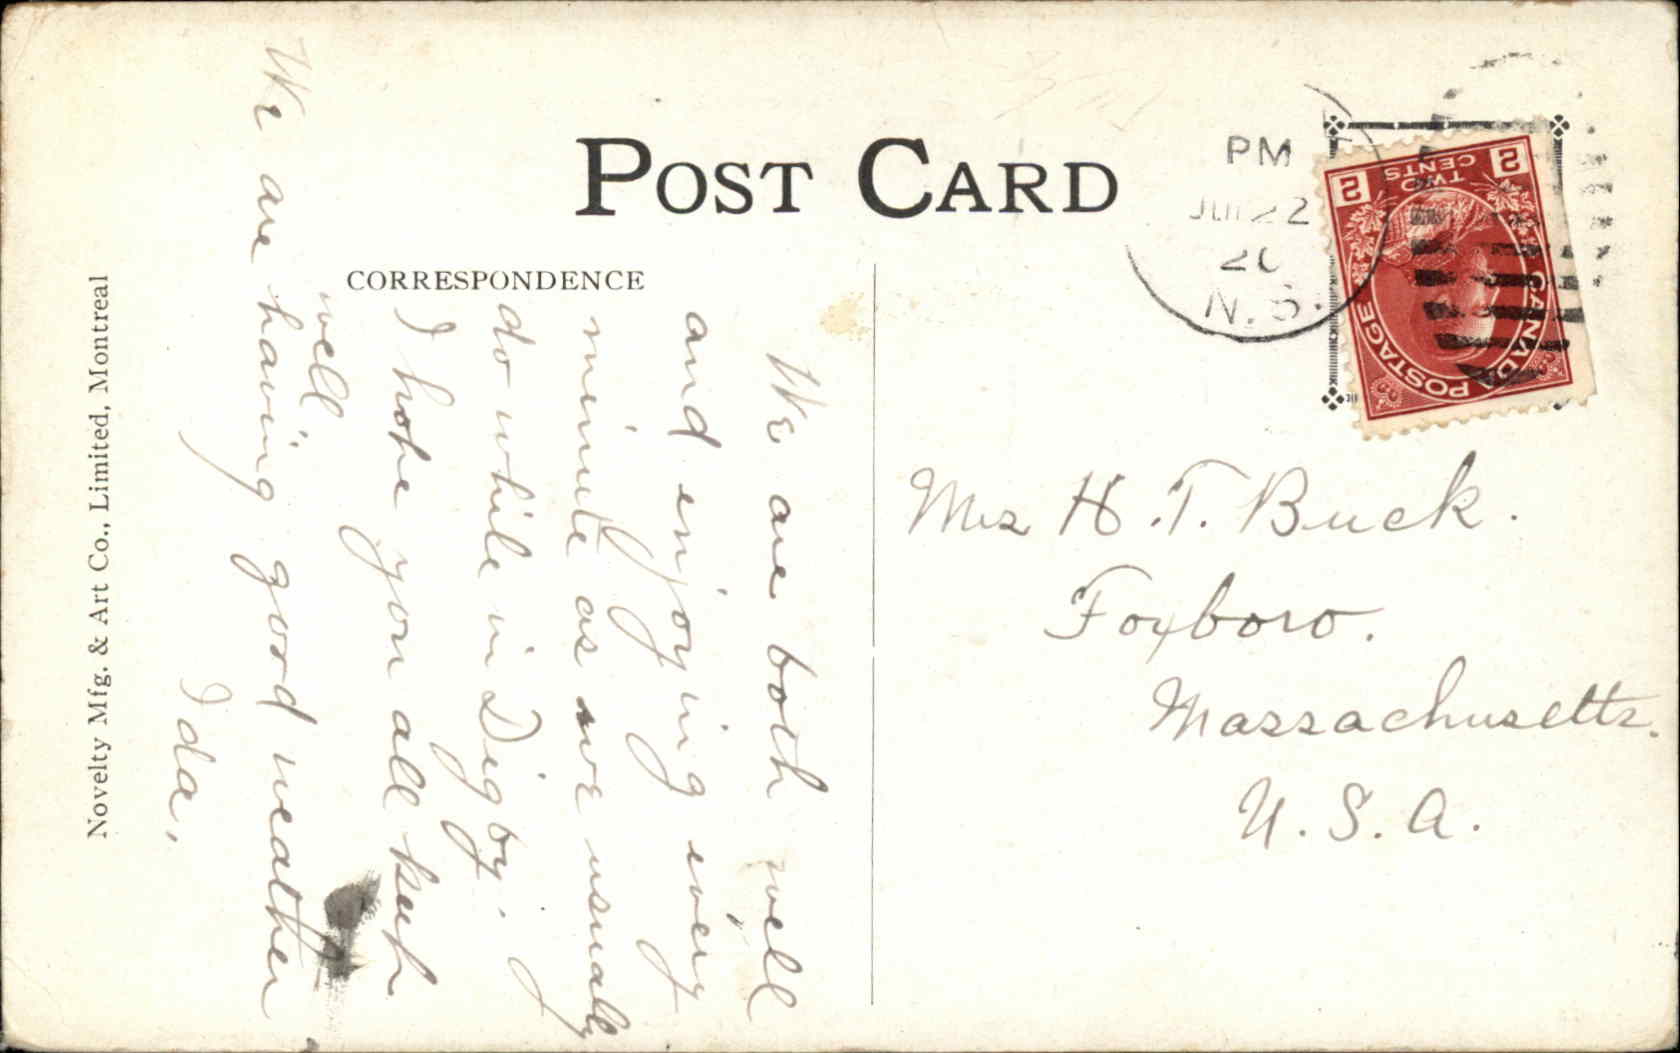 POST CARD
CORRESPONDENCE
We are both well
and enjoying every
minute as we usually
do while in Digby.
I hope you all keep
well
We are having good weather
Ida.
PM
22
N.S.
2 TWO CENTS 2
CANADA POSTAGE
Mrs H. T. Buck.
Foxboro.
Massachusetts.
U. S. A.
Novelty Mfg. & Art Co., Limited, Montreal